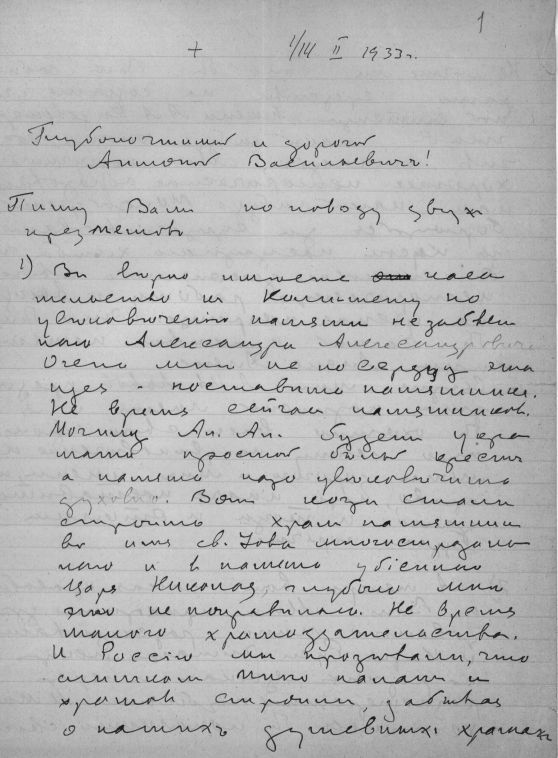 1
+ 1/14 II 1933 г.
Глубокочтимый и дорогой
Антоній Васильевичъ!
Пишу Вамъ по поводу двухъ
предметовъ
1) Вы вѣрно имѣете каса
тельство къ Комитету по
увѣковѣченію памяти незабвен
наго Александра Александровича
Очень мнѣ не по сердцу эта
идея - поставить памятникъ.
Не время сейчас памятников.
Могилу Ал. Ал. будетъ укра
шать простой бѣлый крестъ
а память надо увѣковѣчить
духовно. Вотъ когда стали
строить храм памятник
во имя св. Іова многострадаль
наго и в память убіеннаго
Царя Николая, глубоко мнѣ
это не понравилось. Не время
такого храмоздательства.
И Россію мы прозѣвали, что
слишком много палат и
храмов строили, забывая
о нашихъ душевныхъ храмахъ